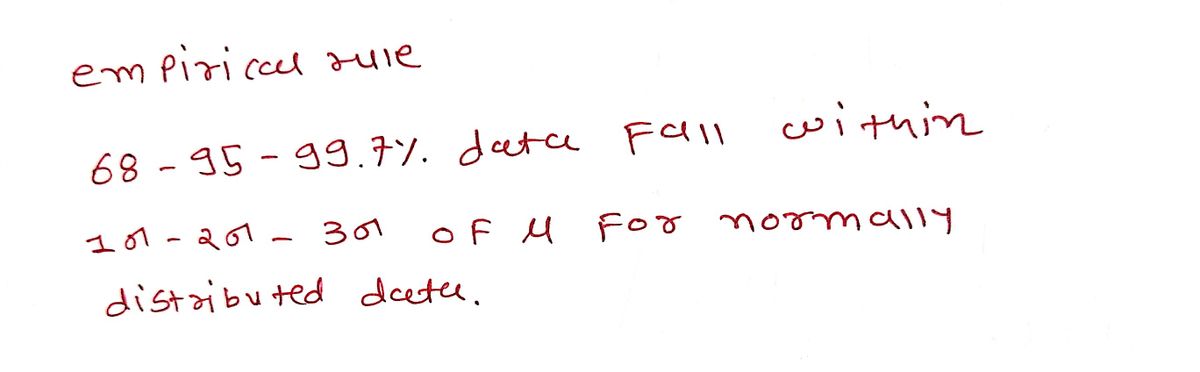 empirical rule
68 - 95 - 99.7%. data Fall within
1σ - 2σ - 3σ OF μ For normally
distributed data.